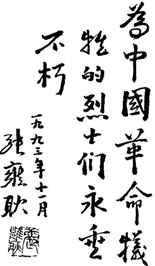 為中國革命犧
牲的烈士们永垂
不朽
一九九三年十一月
张雍耿